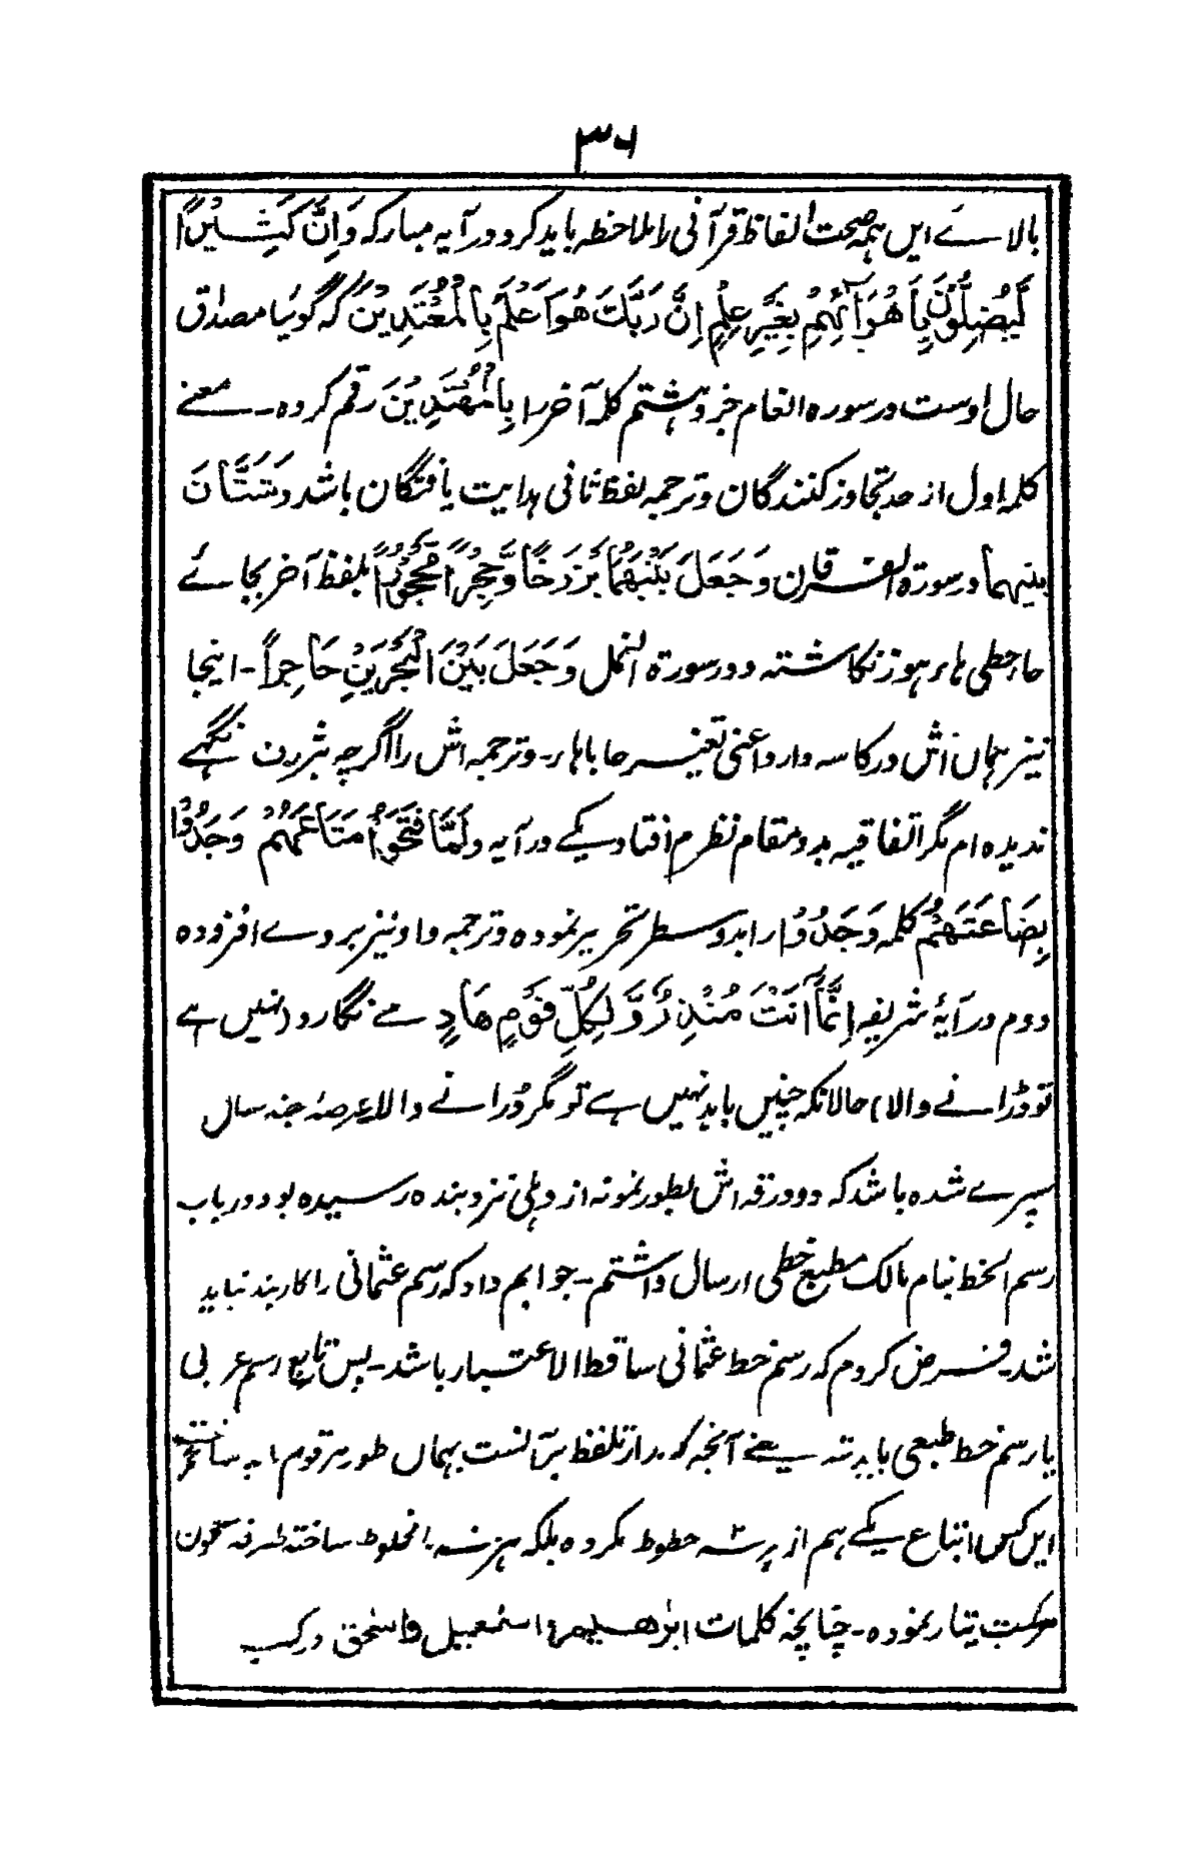 ۳۶
بالاے ایں ہمہ صحت الفاظ قرآنی را ملاحظہ باید کرد در آیہ مبارکہ وَاِنَّ کَثِیْرًا
لَّیُضِلُّوْنَ بِاَهْوَآئِهِمْ بِغَیْرِ عِلْمٍ اِنَّ رَبَّكَ هُوَ اَعْلَمُ بِالْمُعْتَدِیْنَ کہ گویا مصداق
حال اوست در سورہ انعام جزو ہشتم کلمہ آخر را بِالْمُهْتَدِیْنَ رقم کردہ۔ معنے
کلمہ اول از حد تجاوز کنندگان و ترجمہ لفظ ثانی ہدایت یافتگان باشد و شَتَّانَ
بینہما در سورۃ الفرقان وَجَعَلَ بَیْنَهُمَا بَرْزَخًا وَّحِجْرًا مَّحْجُوْرًا بلفظ آخر بجائے
حاء حطی ہاء ہوز نگاشتہ و در سورۃ النمل وَجَعَلَ بَیْنَ الْبَحْرَیْنِ حَاجِزًا۔ اینجا
نیز ہماں آش در کاسہ دارد اعنی تغییر حا باہا۔ و ترجمہ اش را اگرچہ بنگہے
ندیدہ ام مگر اتفاقیہ بدو مقام نظرم افتاد یکے در آیہ وَلَمَّا فَتَحُوْا مَتَاعَهُمْ وَجَدُوْا
بِضَاعَتَهُمْ کلمہ وَجَدُوْا را بدو سطر تحریر نمودہ و ترجمہ واو نیز بروے افزودہ
دوم در آیۂ شریفہ اِنَّمَاۤ اَنْتَ مُنْذِرٌ وَّلِکُلِّ قَوْمٍ هَادٍ مے نگارد (نہیں ہے
تو ڈرانے والا) حالانکہ چنیں باید نہیں ہے تو مگر ڈرانے والا عرصۂ چند سال
سپرے شدہ باشد کہ دو ورقہ اش بطور نمونہ از دہلی نزد بندہ رسیدہ بود در باب
رسم الخط بنام مالک مطبع خطی ارسال داشتم۔ جوابم داد کہ رسم عثمانی را کاربند نباید
شد۔ فرض کردم کہ رسم خط عثمانی ساقط الاعتبار باشد۔ پس تابع رسم عربی
یا رسم خط طبعی باید یعنے آنچہ کہ مدار تلفظ برآنست بہماں طور مرقوم
ایں کس اتباع یکے ہم از ہرسہ خطوط نکردہ بلکہ ہرسہ را مخلوط ساختہ
مرکب تیار نمودہ۔ چنانچہ کلمات ابرٰهیم و اسمٰعیل و اسحٰق